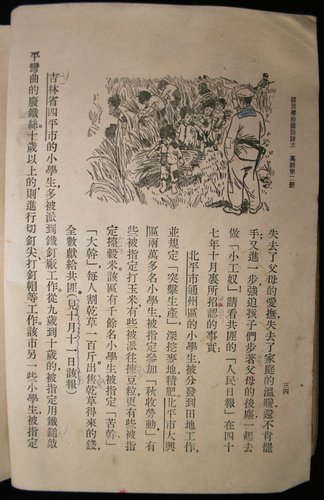 國民學校國語課本　高級第二册
三四
失去了父母的愛撫失去了家庭的溫暖還不肯罷
手又進一步強迫孩子們步著父母的後塵一起去
做「小工奴」請看共匪的「人民日報」在四十
七年十月裏所招認的事實
北平市通州區的小學生被分發到田地工作
並規定「突擊生產」深挖麥地積肥北平市大興
區兩萬多名小學生被指定參加「秋收勞動」有
些被指定打玉米有些被派往揀豆粒更有些被指
定搗穀米該區有千餘名小學生被指定「苦幹」
「大幹」每人割乾草一百斤出售乾草得來的錢
全數獻給共匪（見十月十一日該報）
吉林省四平市的小學生多被派到鐵釘廠工作從九歲到十歲的被指定用鐵鎚敲
平彎曲的廢鐵絲十歲以上的則進行切釘尖打釘帽等工作該市另一些小學生被指定